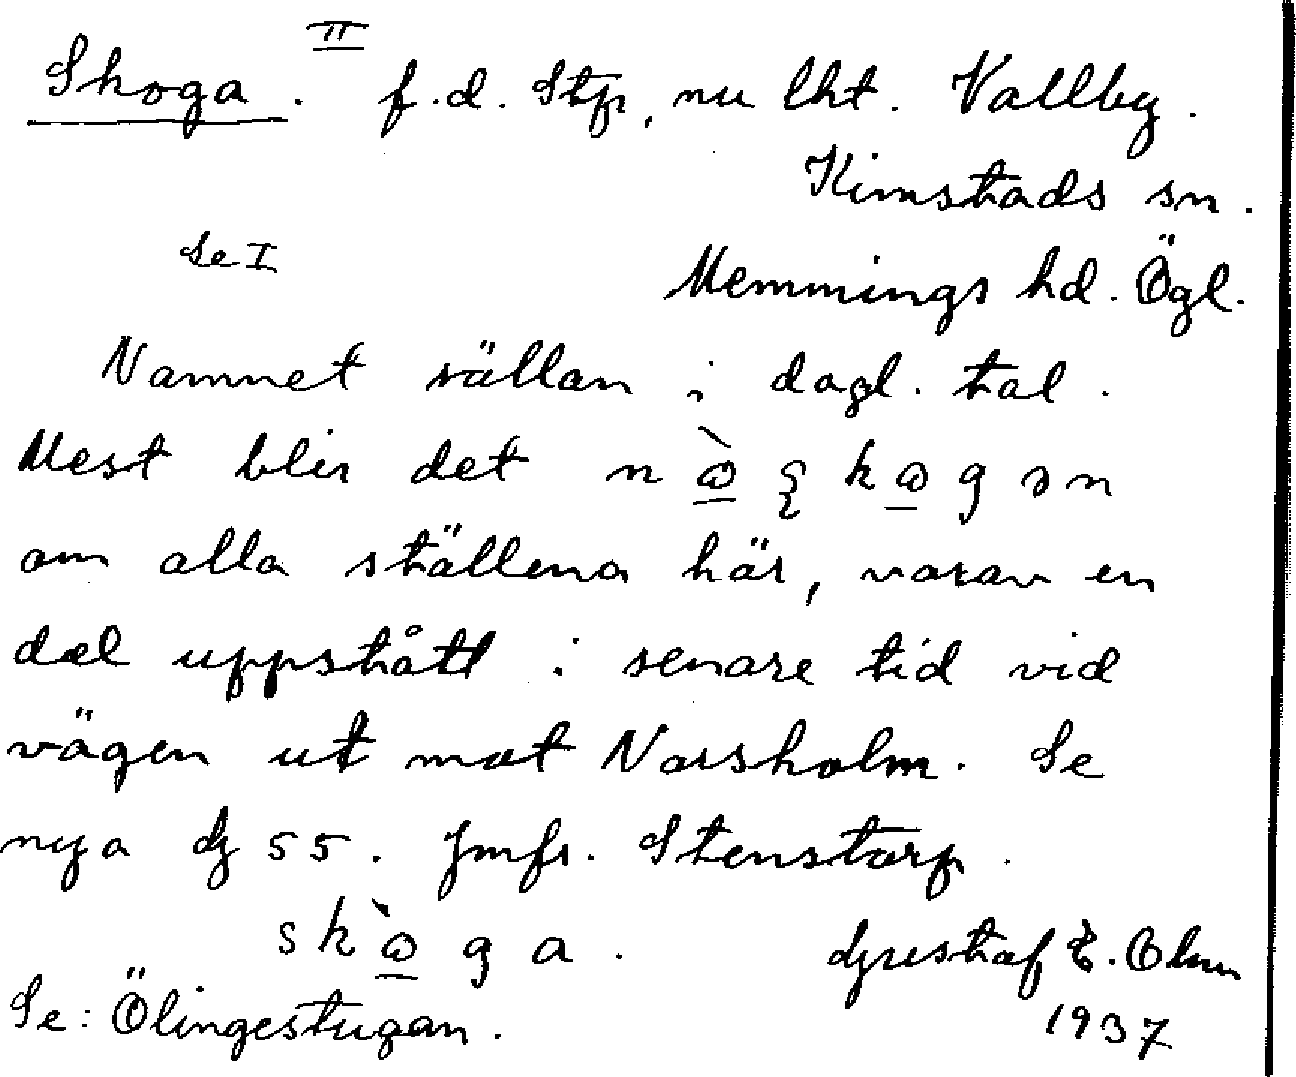 Skoga. II f.d. Stp, nu lht. Vallby.
Kimstads sn.
Se I
Memmings hd. Ögl.
Namnet sällan i dagl. tal.
Mest blir det
om alla ställena här, varav en
del uppstått i senare tid vid
vägen ut mot Norsholm. Se
nya dg 55. Jmfr. Stenstorp.
Gustaf E. Olum
Se: Ölingestugan.
1937